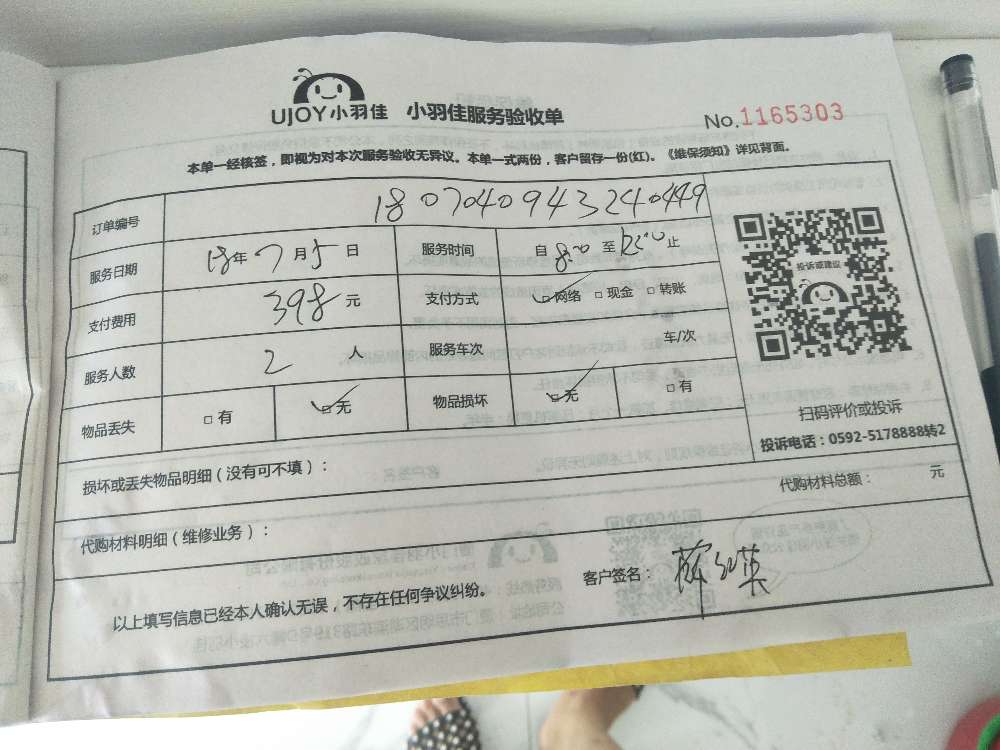 UJOY小羽佳 小羽佳服务验收单 No.1165303
本单一经核签，即视为对本次服务验收无异议。本单一式两份，客户留存一份(红)。《维保须知》详见背面。
订单编号 1807040943240449
服务日期 18年7月5日 服务时间 自8:00至12:00止
支付费用 398元 支付方式 □网络 □现金 □转账
服务人数 2人 服务车次 车/次
物品丢失 □有 □无 物品损坏 □无 □有
投诉或建议
扫码评价或投诉
投诉电话：0592-5178888转2
损坏或丢失物品明细（没有可不填）：
代购材料明细（维修业务）： 代购材料总额： 元
以上填写信息已经本人确认无误，不存在任何争议纠纷。 客户签名：薛红英